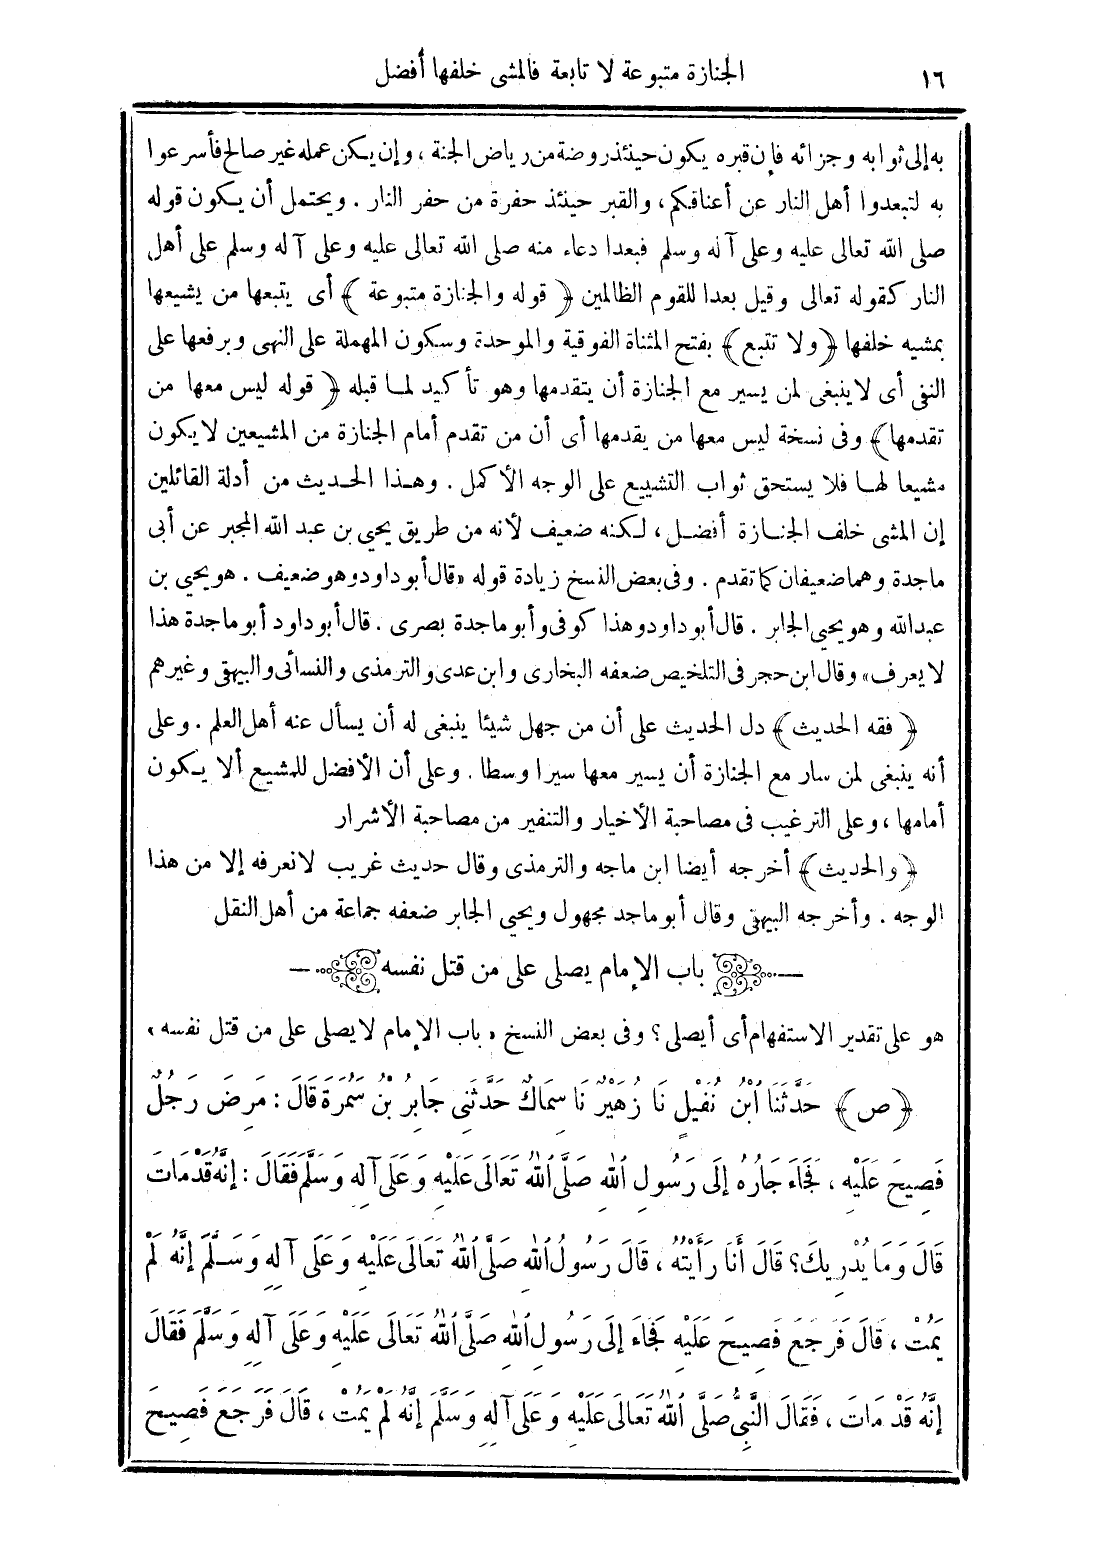 ١٦
الجنازة متبوعة لا تابعة فالمشى خلفها أفضل
به إلى ثوابه وجزائه فإن قبره يكون حينئذ روضة من رياض الجنة ، وإن يكن عمله غير صالح فأسرعوا
به لتبعدوا أهل النار عن أعناقكم ، والقبر حينئذ حفرة من حفر النار . ويحتمل أن يكون قوله
صلى الله تعالى عليه وعلى آله وسلم فبعدا دعاء منه صلى الله تعالى عليه وعلى آله وسلم على أهل
النار كقوله تعالى وقيل بعدا للقوم الظالمين ﴿ قوله والجنازة متبوعة ﴾ أى يتبعها من يشيعها
بمشيه خلفها ﴿ولا تتبع﴾ بفتح المثناة الفوقية والموحدة وسكون المهملة على النهى وبرفعها على
النفى أى لا ينبغى لمن يسير مع الجنازة أن يتقدمها وهو تأكيد لما قبله ﴿ قوله ليس معها من
تقدمها﴾ وفى نسخة ليس معها من يقدمها أى أن من تقدم أمام الجنازة من المشيعين لا يكون
مشيعا لها فلا يستحق ثواب التشييع على الوجه الأكمل . وهذا الحديث من أدلة القائلين
إن المشى خلف الجنازة أفضل ، لكنه ضعيف لأنه من طريق يحيي بن عبد الله المجبر عن أبى
ماجدة وهما ضعيفان كما تقدم . وفى بعض النسخ زيادة قوله «قال أبو داود وهو ضعيف . هو يحيي بن
عبدالله وهو يحيي الجابر . قال أبو داود وهذا كوفى وأبو ماجدة بصرى . قال أبو داود أبو ماجدة هذا
لا يعرف» وقال ابن حجر فى التلخيص ضعفه البخارى وابن عدى والترمذى والنسائى والبيهقى وغيرهم
﴿ فقه الحديث ﴾ دل الحديث على أن من جهل شيئا ينبغى له أن يسأل عنه أهل العلم . وعلى
أنه ينبغى لمن سار مع الجنازة أن يسير معها سيرا وسطا . وعلى أن الأفضل للمشيع ألا يكون
أمامها ، وعلى الترغيب فى مصاحبة الأخيار والتنفير من مصاحبة الأشرار
﴿ والحديث ﴾ أخرجه أيضا ابن ماجه والترمذى وقال حديث غريب لا نعرفه إلا من هذا
الوجه . وأخرجه البيهقى وقال أبو ماجد مجهول ويحيي الجابر ضعفه جماعة من أهل النقل
باب الإمام يصلى على من قتل نفسه
هو على تقدير الاستفهام أى أيصلى ؟ وفى بعض النسخ « باب الإمام لا يصلى على من قتل نفسه »
﴿ ص ﴾ حَدَّثَنَا ابْنُ نُفَيْلٍ نَا زُهَيْرٌ نَا سِمَاكٌ حَدَّثَنِى جَابِرُ بْنُ سَمُرَةَ قَالَ : مَرِضَ رَجُلٌ
فَصِيحَ عَلَيْهِ ، فَجَاءَ جَارُهُ إِلَى رَسُولِ اللهِ صَلَّى اللهُ تَعَالَى عَلَيْهِ وَعَلَى آلِهِ وَسَلَّمَ فَقَالَ : إِنَّهُ قَدْ مَاتَ
قَالَ وَمَا يُدْرِيكَ؟ قَالَ أَنَا رَأَيْتُهُ ، قَالَ رَسُولُ اللهِ صَلَّى اللهُ تَعَالَى عَلَيْهِ وَعَلَى آلِهِ وَسَلَّمَ إِنَّهُ لَمْ
يَمُتْ ، قَالَ فَرَجَعَ فَصِيحَ عَلَيْهِ فَجَاءَ إِلَى رَسُولِ اللهِ صَلَّى اللهُ تَعَالَى عَلَيْهِ وَعَلَى آلِهِ وَسَلَّمَ فَقَالَ
إِنَّهُ قَدْ مَاتَ ، فَقَالَ النَّبِىُّ صَلَّى اللهُ تَعَالَى عَلَيْهِ وَعَلَى آلِهِ وَسَلَّمَ إِنَّهُ لَمْ يَمُتْ ، قَالَ فَرَجَعَ فَصِيحَ